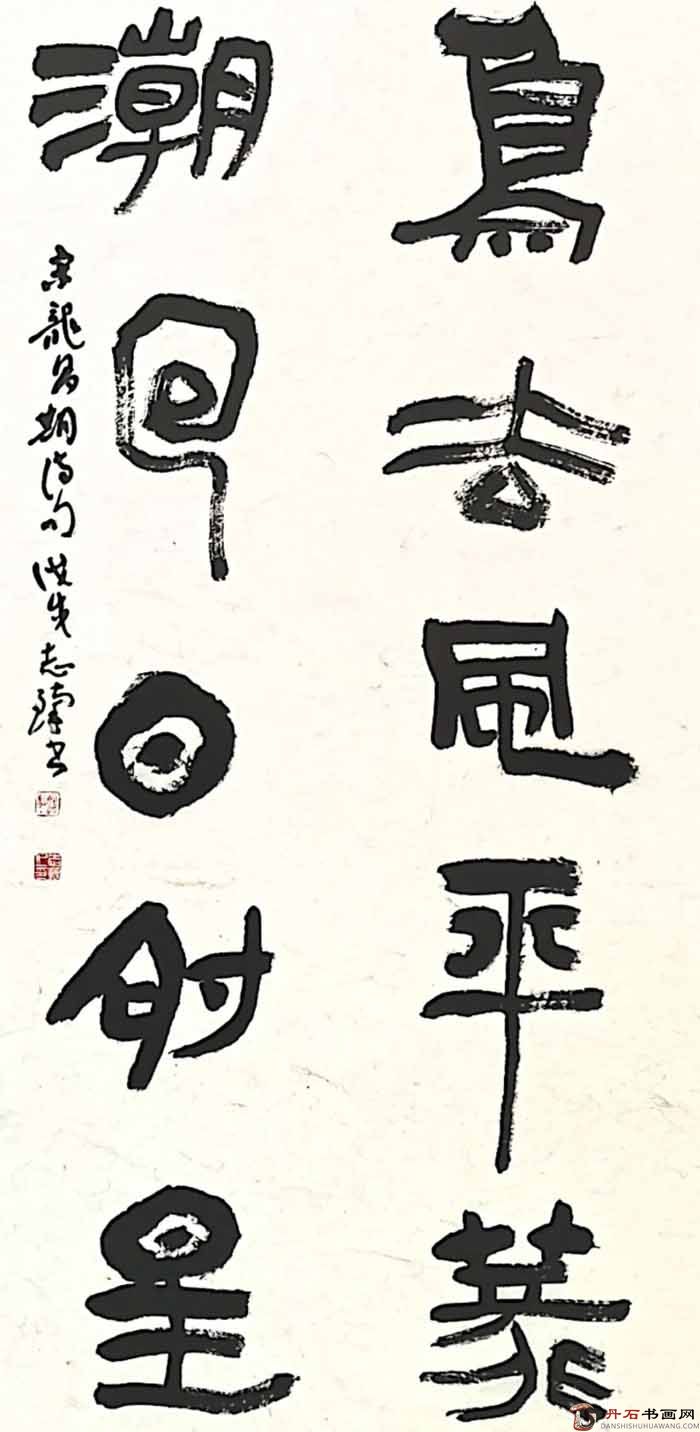 鳥去風平篆
潮回日射星
宋龍昌期詩句 志書
丹石书画网
DANSHISHUHUAWANG.COM